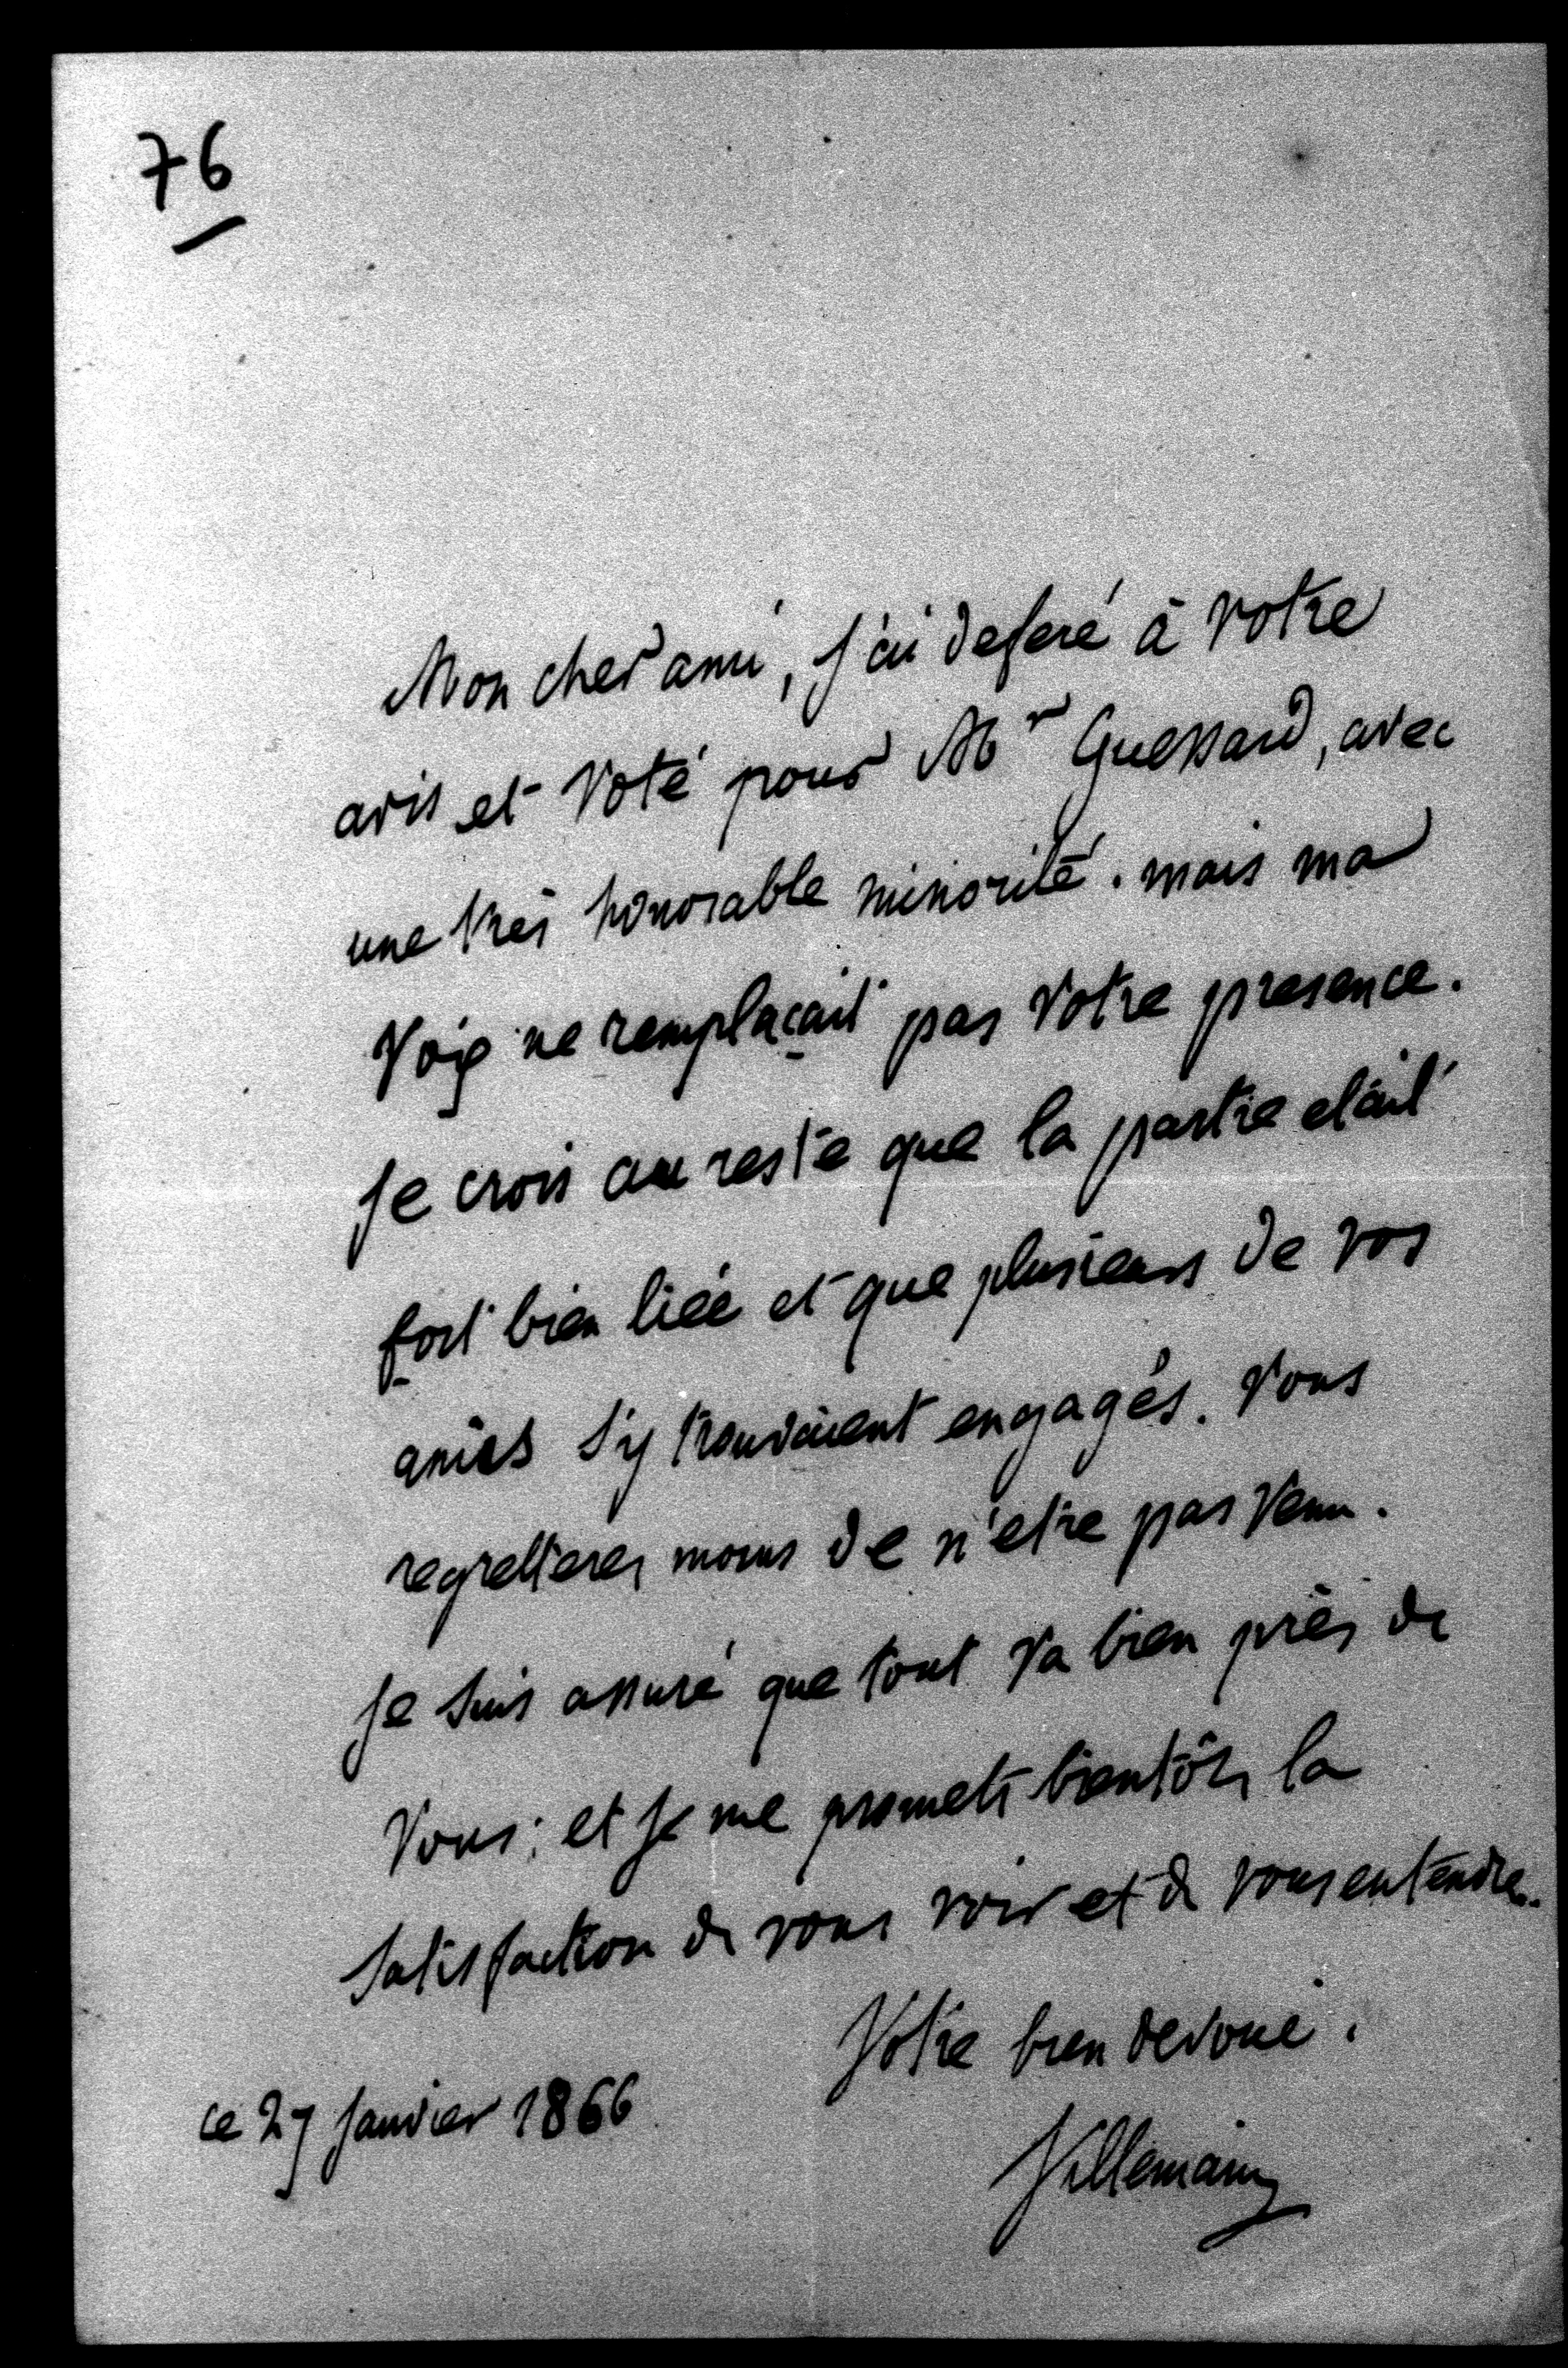 76
Mon cher ami, j'ai deferé à votre
avis et voté pour Mr Guessard, avec
une très honorable minorité. mais ma
voix ne remplaçait pas votre presence.
Je crois au reste que la partie etait
fort bien liée et que plusieurs de vos
amis s'y trouvaient engagés. Vous
regretterez moins de n'etre pas venu.
Je suis assuré que tout va bien près de
vous: et je me promets bientôt la
satisfaction de vous voir et de vous entendre.
Votre bien devoué.
ce 27 janvier 1866
Villemain